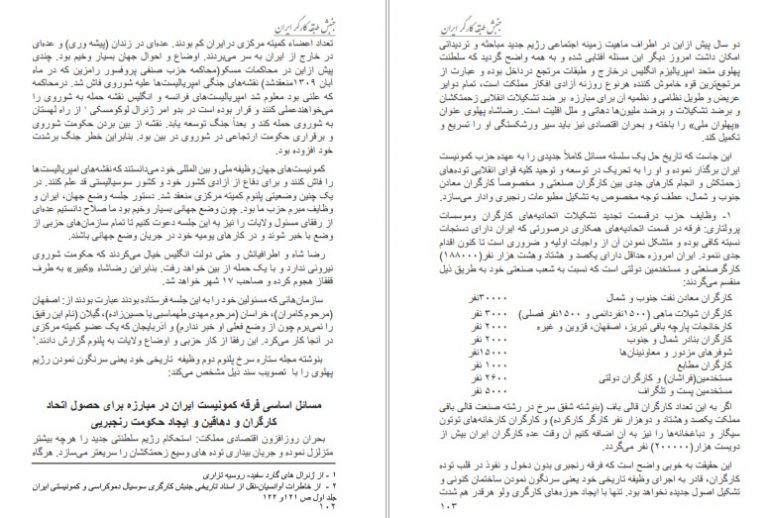 جنبش طبقه کارگر ایران
تعداد اعضاء کمیته مرکزی درایران کم بودند. عده‌ای در زندان (پیشه وری) و عده‌ای
در خارج از ایران به سر می‌بردند. اوضاع و احوال جهان بسیار وخیم بود. چندی
پیش ازاین در محاکمات مسکو(محاکمه حزب صنفی پروفسور رامزین که در ماه
آبان ۱۳۰۹منعقدشد) نقشه‌های جنگی امپریالیست‌ها علیه شوروی فاش شد. درمحاکمه
که علنی بود معلوم شد امپریالیست‌های فرانسه و انگلیس نقشه حمله به شوروی را
می‌خواهندعملی کنند و قرار بوده است در بدو امر ژنرال لوکومسکی' از راه لهستان
به شوروی حمله کند و بعداً جنگ توسعه یابد. نقشه از بین بردن حکومت شوروی
و برقراری حکومت ارتجاعی در شوروی در بین بود. بنابراین خطر جنگ برشدت
خود افزوده بود.
کمونیست‌های جهان وظیفه ملی و بین المللی خود می‌دانستند که نقشه‌های امپریالیست‌ها
را فاش کنند و برای دفاع از آزادی کشور خود و کشور سوسیالیستی قد علم کنند. در
یک چنین وضعیتی پلنوم کمیته مرکزی منعقد شد. دستور جلسه وضع جهان، ایران و
وظایف مبرم حزب ما بود. چون وضع جهانی بسیار وخیم بود ما صلاح دانستیم عده‌ای
از رفقای مسئول ولایات را نیز به این جلسه دعوت کنیم تا تمام سازمان‌های حزبی از
وضع با خبر شوند و در کارهای یومیه خود در جریان وضع جهانی باشند.
رضا شاه و اطرافیانش و حتی دولت انگلیس خیال می‌کردند که حکومت شوروی
نیرونی ندارد و با یک حمله از بین خواهد رفت. بنابراین رضاشاه «کبیر» به طرف
قفقاز هجوم کرده و صاحب ۱۷ شهر خواهد شد.
سازمان‌هائی که مسئولین خود را به این جلسه فرستاده بودند عبارت بودند از: اصفهان
(مرحوم کامران)، خراسان (مرحوم مهدی طهماسبی یا حسین‌زاده)، گیلان (نام این رفیق
را نمی‌برم چون از وضع فعلی او خبر ندارم) و آذربایجان که یک عضو کمیته مرکزی
در آنجا کار می‌کرد. این رفقا از کار حزبی و اوضاع ولایات به پلنوم گزارش دادند.'
بنوشته مجله ستاره سرخ پلنوم دوم وظیفه تاریخی خود یعنی سرنگون نمودن رژیم
پهلوی را با تصویب سند ذیل مشخص می‌کند:
مسائل اساسی فرقه کمونیست ایران در مبارزه برای حصول اتحاد
کارگران و دهاقین و ایجاد حکومت رنجبریی
بحران روزافزون اقتصادی مملکت: استحکام رژیم سلطنتی جدید را هرچه بیشتر
متزلزل نموده و جریان بیداری توده های وسیع زحمتکشان را سریعتر می‌سازد. هرگاه
۱ - از ژنرال های گارد سفید- روسیه تزاری
۲ - از خاطرات آوانسیان-نقل از اسناد تاریخی جنبش کارگری سوسیال دموکراسی و کمونیستی ایران
جلد اول ص ۱۲۱و ۱۲۲
۱۰۲
جنبش طبقه کارگر ایران
دو سال پیش ازاین در اطراف ماهیت زمینه اجتماعی رژیم جدید مباحثه و تردیداتی
امکان داشت امروز دیگر این مسئله آفتابی شده و به همه واضح گردید که سلطنت
پهلوی متحد امپریالیزم انگلیس درخارج و طبقات مرتجع درداخل بوده و عبارت از
مرتجع‌ترین قوه خاموش کننده هرنوع روزنه آزادی افکار مملکت است، تمام دوایر
عریض و طویل نظامی و نظمیه آن برای مبارزه بر ضد تشکیلات انقلابی زحمتکشان
و برضد تشکیلات و برضد ملیون‌ها دهاتی و ملل اقلیت است. رضاشاه پهلوی عنوان
«پهلوان ملی» را باخته و بحران اقتصادی نیز باید سیر ورشکستگی او را تسریع و
تکمیل کند.
این جاست که تاریخ حل یک سلسله مسائل کاملاً جدیدی را به عهده حزب کمونیست
ایران برگذار نموده و او را به تحریک در توسعه و توحید کلیه قوای انقلابی توده‌های
زحمتکش و انجام کارهای جدی بین کارگران صنعتی و مخصوصاً کارگران معادن
جنوب و شمال، عطف توجه مخصوص به تشکیل مطبوعات رنجبری وادار می‌سازد.
۱- وظایف حزب درقسمت تجدید تشکیلات اتحادیه‌های کارگران وموسسات
پرولتاری: فرقه در قسمت اتحادیه‌های همکاری درصورتی که ایران دارای دستجات
نسبته کافی بوده و متشکل نمودن آن از واجبات اولیه و ضروری است تا کنون اقدام
جدی ننمود. ایران امروزه حداقل دارای یکصد و هشتاد وهشت هزار نفر(۱۸۸۰۰۰)
کارگرصنعتی و مستخدمین دولتی است که نسبت به شعب صنعتی خود به طریق ذیل
منقسم می‌گردند:
کارگران معادن نفت جنوب و شمال ۳۰۰۰۰نفر
کارگران شیلات ماهی (۱۵۰۰نفردائمی و ۱۵۰۰نفر فصلی) ۳۰۰۰ نفر
کارخانجات پارچه بافی تبریز، اصفهان، قزوین و غیره ۲۰۰۰ نفر
کارگران بنادر شمال و جنوب ۲۰۰۰ نفر
شوفرهای مزدور و معاونینان‌ها ۱۵۰۰۰نفر
کارگران مطابع ۱۰۰۰ نفر
مستخدمین(فراشان) و کارگران دولتی ۲۶۰۰ نفر
مستخدمین پست و تلگراف ۵۰۰۰ نفر
اگر به این تعداد کارگران قالی باف (بنوشته شفق سرخ در رشته صنعت قالی بافی
مملکت یکصد وهشتاد و دوهزار نفر کارگر کارکرده) و کارگران کارخانه‌های توتون
سیگار و دباغخانه‌ها را نیز به آن اضافه کنیم آن وقت عده کارگران ایران بیش از
دویست هزار(۲۰۰۰۰۰) نفر می‌گردد.
این حقیقت به خوبی واضح است که فرقه رنجبری بدون دخول و نفوذ در قلب توده
کارگران، قادر به اجرای وظیفه تاریخی خود یعنی سرنگون نمودن ساختمان کنونی و
تشکیل اصول جدیده نخواهد بود. تنها با ایجاد حوزه‌های کارگری ولو هرقدر هم شدت
۱۰۳